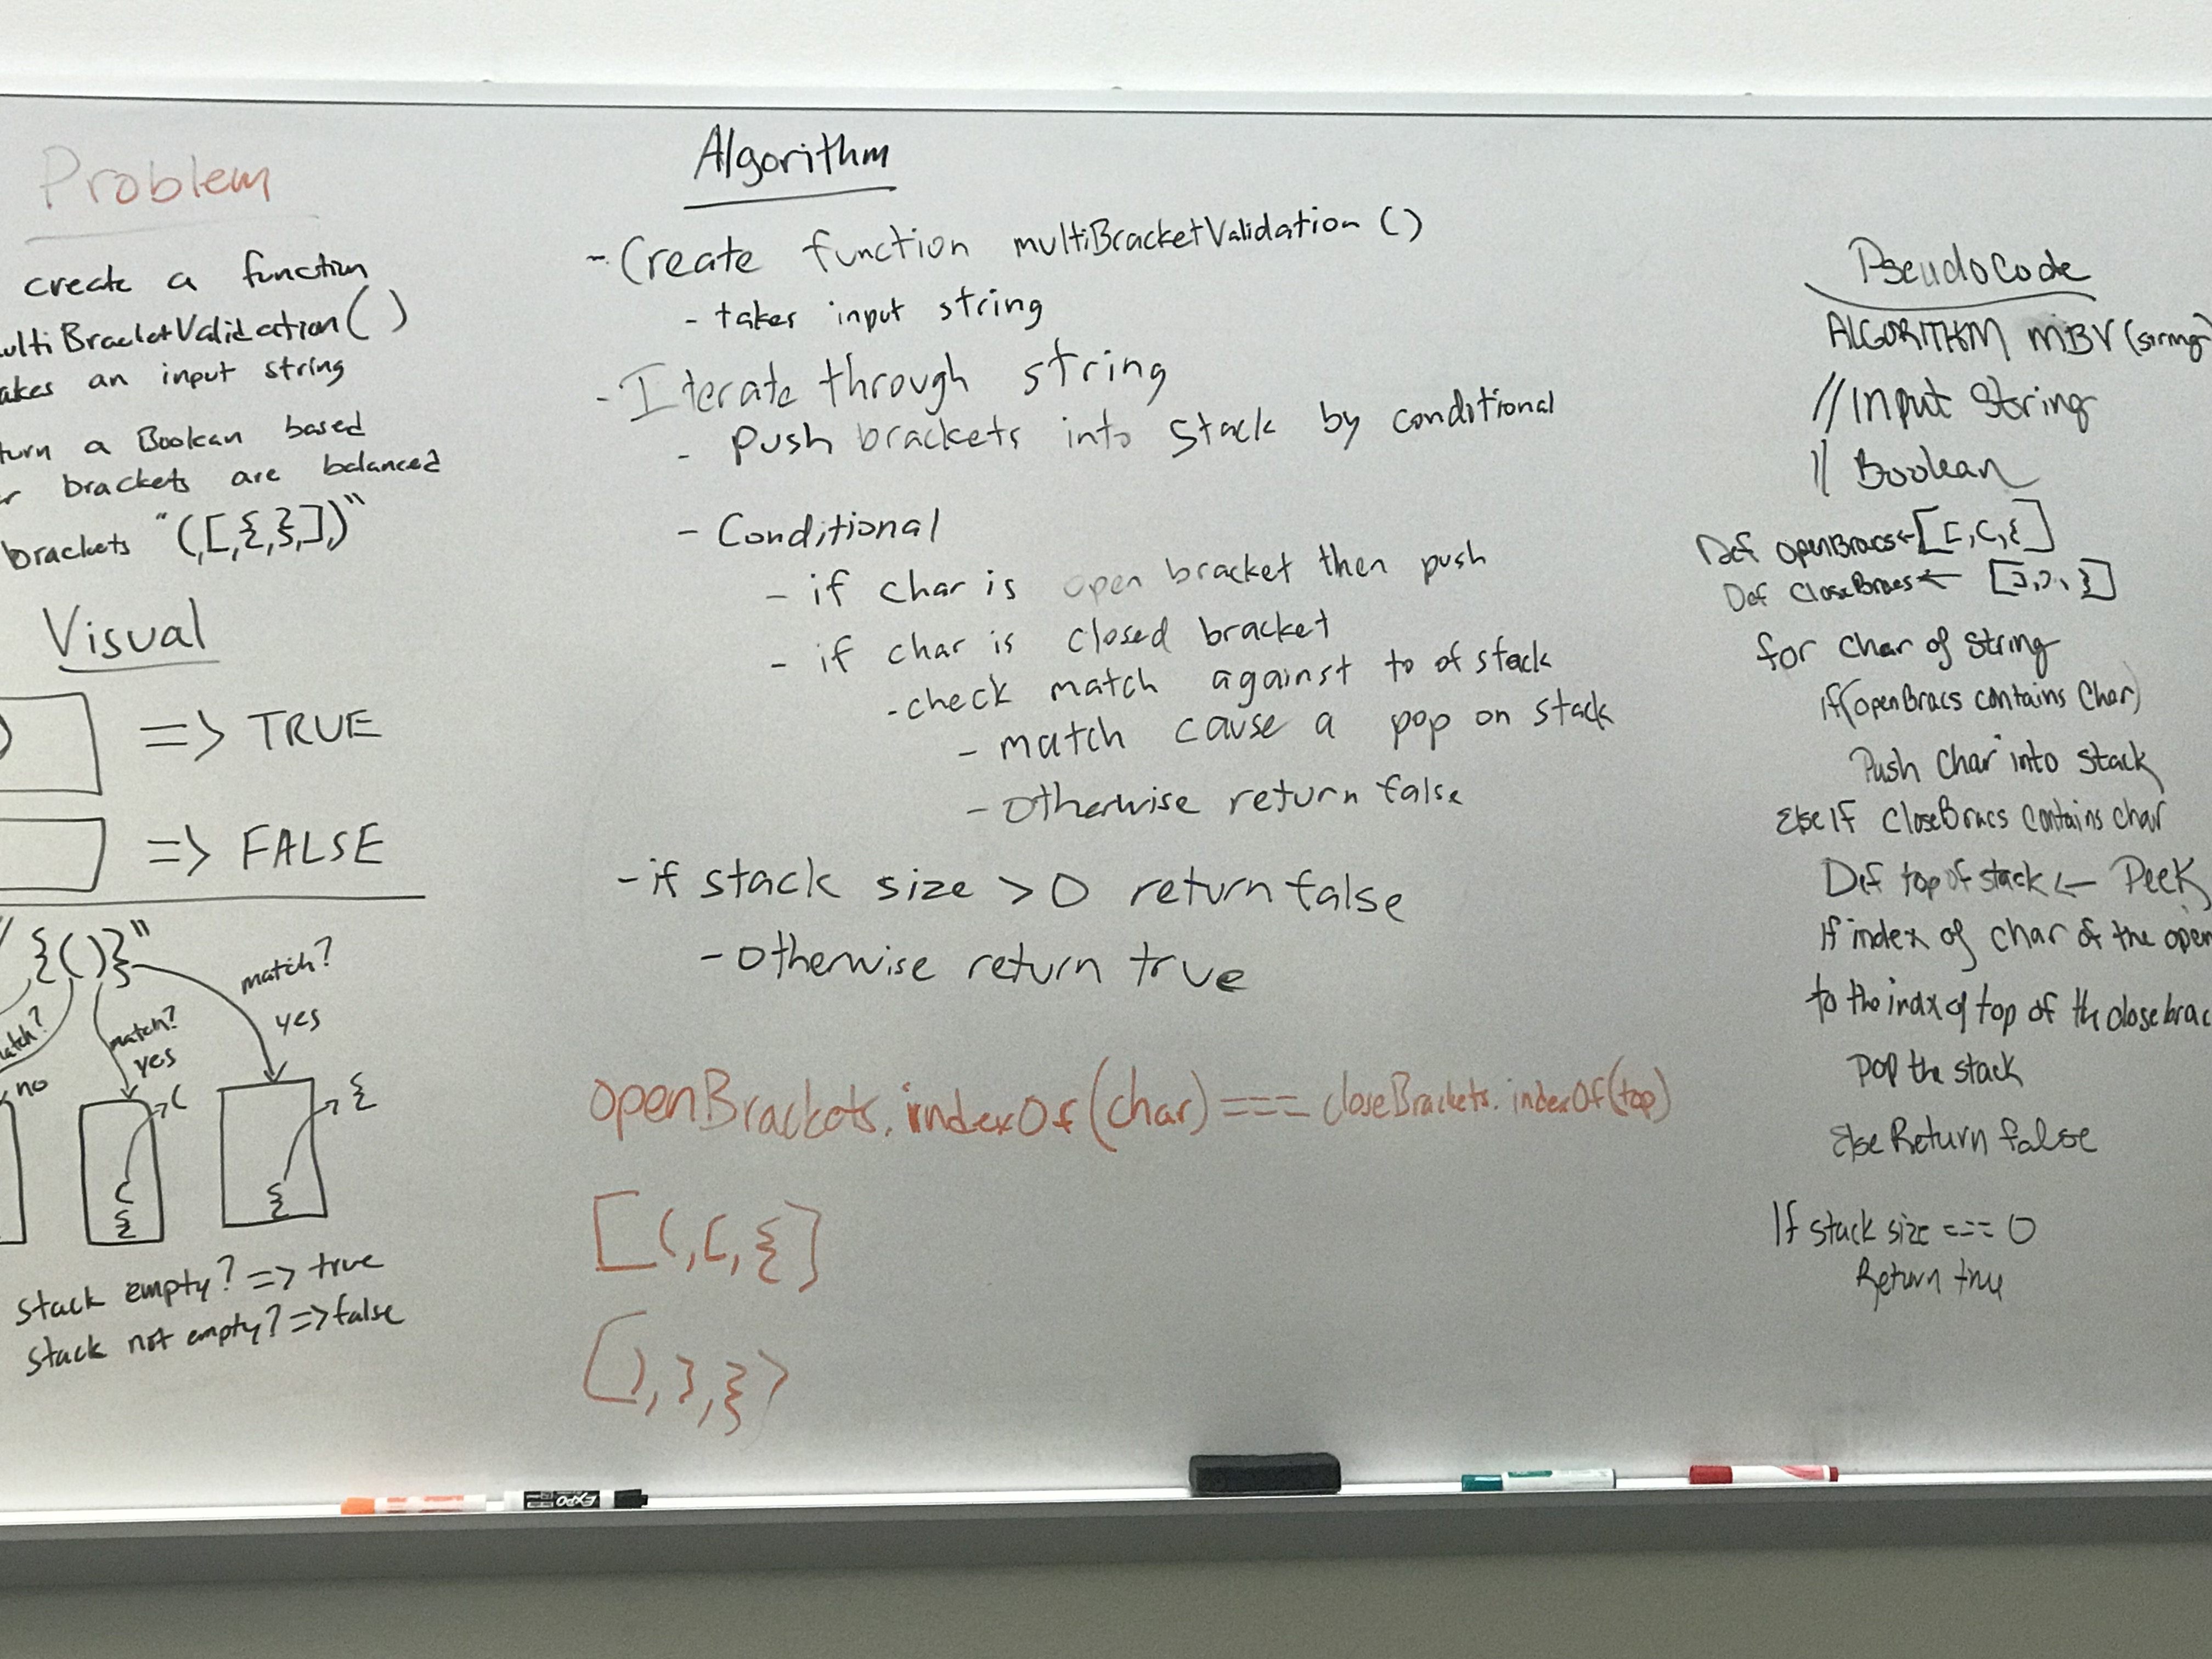 Problem
create a function
ultiBracketValidation()
akes an input string
turn a Boolean based
er brackets are balanced
brackets "(,[,{,},],)"
Visual
=> TRUE
=> FALSE
"{()}"
match?
yes
match?
yes
atch?
no
(
{
(
{
{
stack empty? => true
stack not empty? => false
Algorithm
- Create function multiBracketValidation ()
- takes input string
- Iterate through string
- push brackets into stack by conditional
- Conditional
- if char is open bracket then push
- if char is closed bracket
- check match against to of stack
- match cause a pop on stack
- otherwise return false
- if stack size > 0 return false
- otherwise return true
openBrackets.indexOf(char) === closeBrackets.indexOf(top)
[(,[,{]
[),],}]
EXPO
PseudoCode
ALGORITHM MBV (string)
// Input String
// Boolean
Def openBracs ← [[,(,{]
Def closeBracs ← [],),}]
for char of string
if(openBracs contains char)
Push char into stack
Else If closeBracs contains char
Def top of stack ← Peek
If index of char of the open
to the index of top of the closebrac
pop the stack
Else Return false
If stack size === 0
Return true